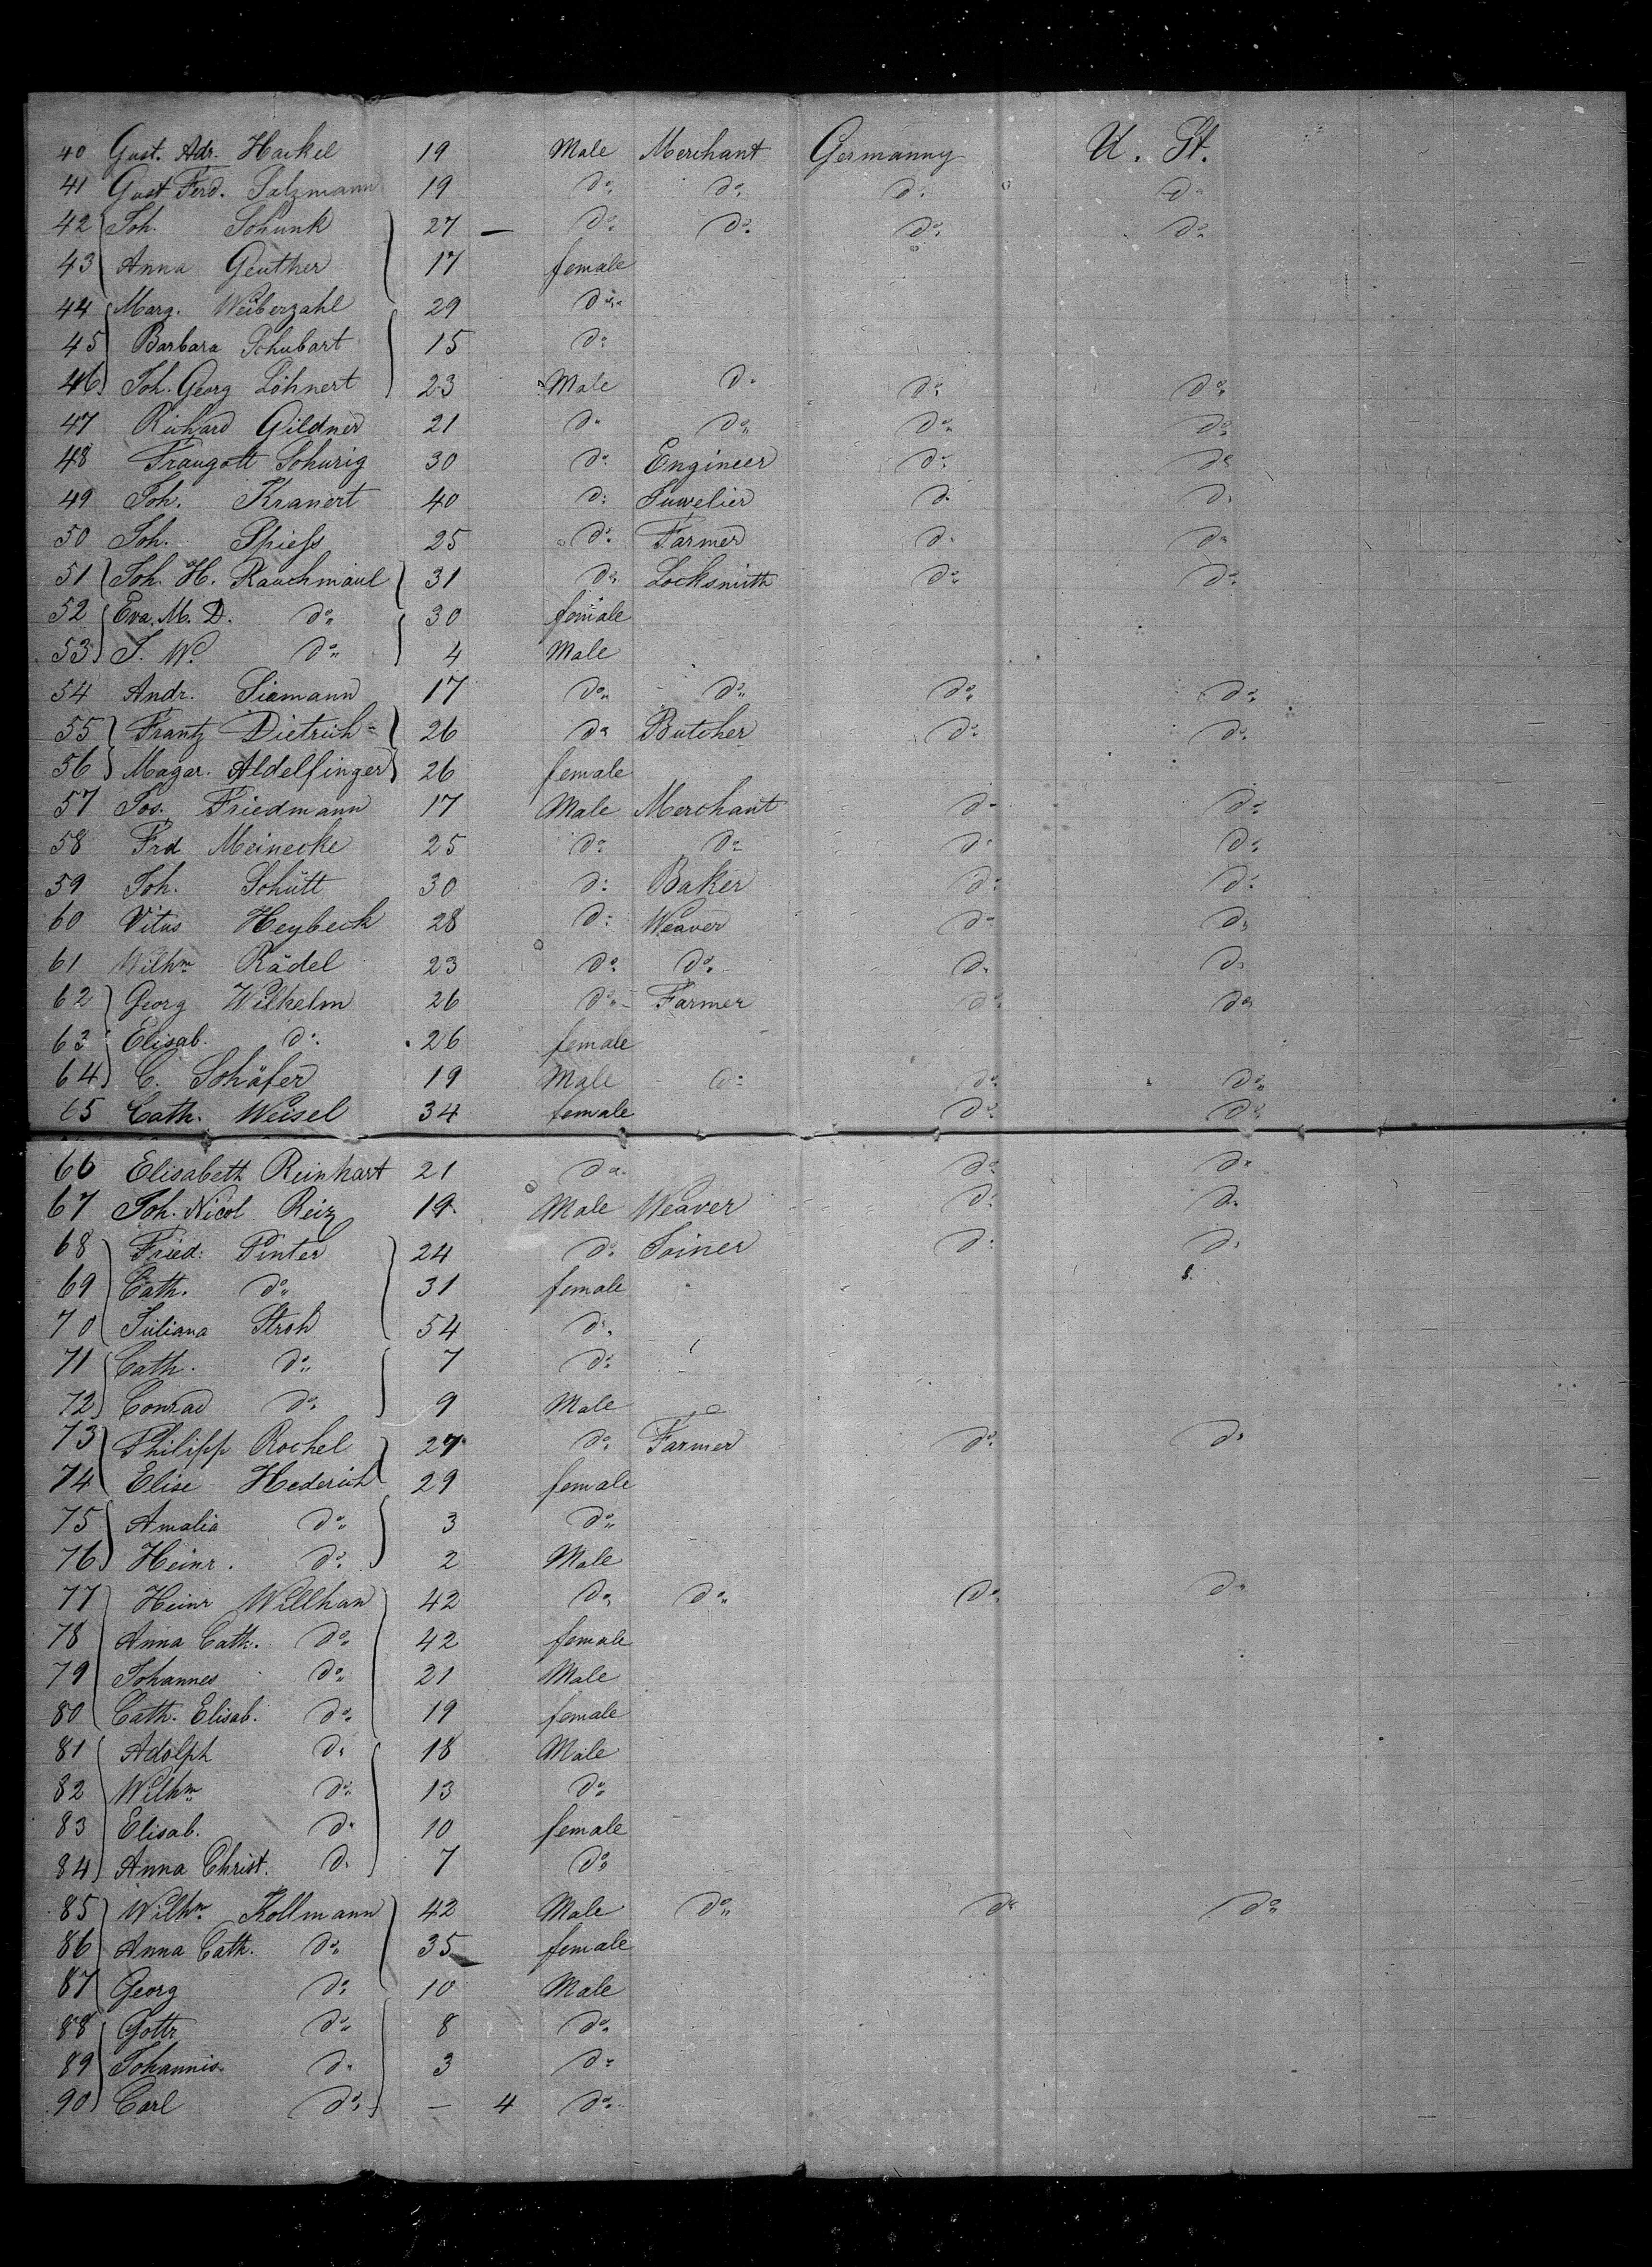 40 Gust. Adr. Hackel 19 Male Merchant Germanny U. St.
41 Gust Ferd. Salzmann 19 do do do do
42 Joh. Schunk 27 — do do do do
43 Anna Geuther 17 female
44 Marg. Weiberzahl 29 do
45 Barbara Schubart 15 do
46 Joh. Georg Löhnert 23 Male do do do
47 Richard Gildner 21 do do do do
48 Traugott Schurig 30 do Engineer do do
49 Joh. Kranert 40 do Juwelier do do
50 Joh. Spiess 25 do Farmer do do
51 Joh. H. Rauchmaul 31 do Locksmith do do
52 Eva. M. D. do 30 female
53 J. W. do 4 Male
54 Andr. Siemann 17 do do do do
55 Frantz Dietrich 26 do Butcher do do
56 Magar. Aldelfinger 26 female
57 Jos. Friedmann 17 Male Merchant do do
58 Frd Meinecke 25 do do do do
59 Joh. Schütt 30 do Baker do do
60 Vitus Heybeck 28 do Weaver do do
61 Wilhm Rädel 23 do do do do
62 Georg Wilhelm 26 do Farmer do do
63 Elisab. do 26 female
64 C. Schäfer 19 Male do do do
65 Cath. Weisel 34 female do do
66 Elisabeth Reinhart 21 do do do
67 Joh. Nicol Reiz 19 Male Weaver do do
68 Fried: Pinter 24 do Joiner do do
69 Cath. do 31 female
70 Juliana Stroh 54 do
71 Cath. do 7 do
72 Conrad do 9 Male
73 Philipp Rochel 27 do Farmer do do
74 Elise Hederich 29 female
75 Amalia do 3 do
76 Heinr. do 2 Male
77 Heinr Willhan 42 do do do do
78 Anna Cath. do 42 female
79 Johannes do 21 Male
80 Cath. Elisab. do 19 female
81 Adolph do 18 Male
82 Wilhm do 13 do
83 Elisab. do 10 female
84 Anna Christ. do 7 do
85 Wilhm Kollmann 42 Male do do do
86 Anna Cath. do 35 female
87 Georg do 10 Male
88 Gottr do 8 do
89 Johannis do 3 do
90 Carl do — 4 do